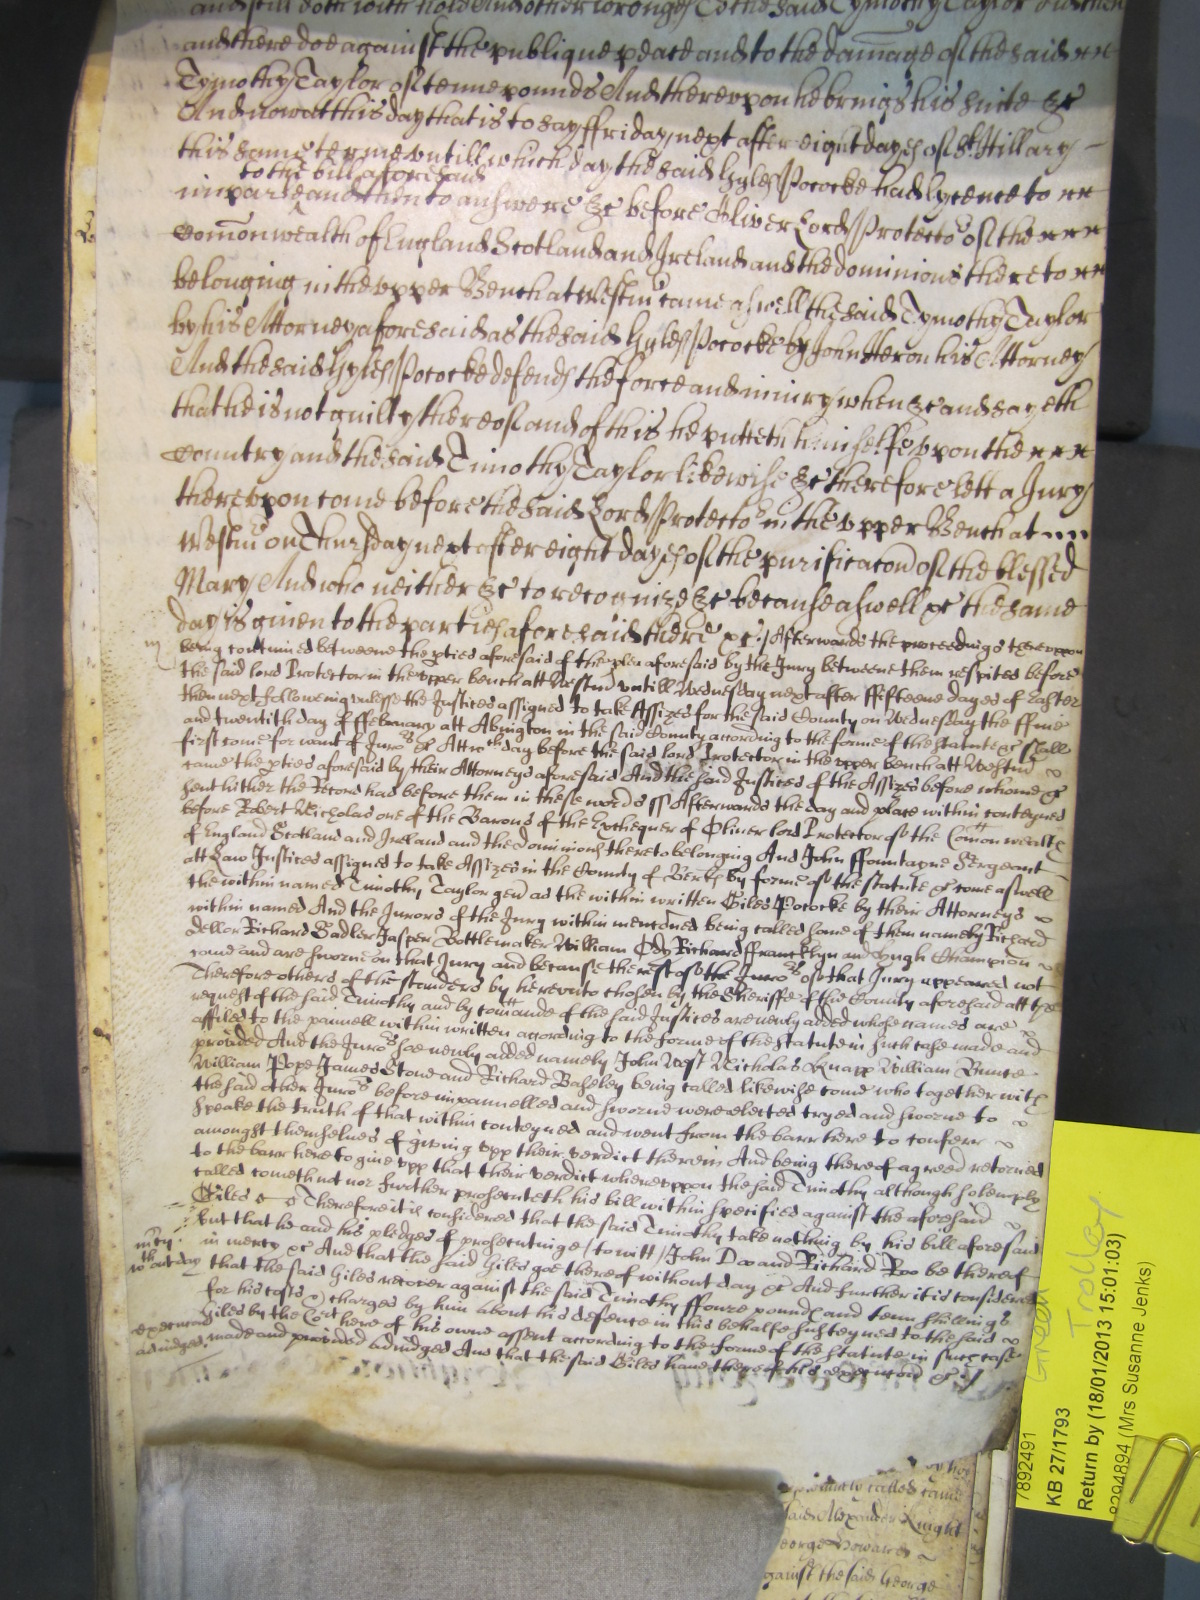 and still doth with hold And other wronges To the said Tymothy Taylor
and there doe against the publique peace and to the damage of the said
Tymothy Taylor of tenne pounds And therevpon he brings his suite &c
And now att this day that is to say ffriday next after eight dayes of St Hillary
this same terme vntill which day the said Gyles Pococke had lycence to
to the bill aforesaid
imparle and then to answere &c before Oliver Lord Protector of the
Comonwealth of England Scotland and Ireland and the dominions thereto
belonging in the vpper Bench at Westm came aswell the said Tymothy Taylor
by his Attorney aforesaid as the said Gyles Pococke by John Heron his Attorney
And the said Gyles Pococke defends the force and iniury when &c and sayeth
that he is not guilty thereof and of this he putteth himselfe vpon the
Country and the said Timothy Taylor likewise &c therefore lett a Jury
therevpon come before the said Lord Protector in the vpper Bench at
Westm on Thursday next after eight dayes of the purificacon of the blessed
Mary And who neither &c to recognize &c because aswell &c the same
day is given to the parties aforesaid there &c Afterwards the proceedings therevpon
being continued betweene the pties aforesaid of the plea aforesaid by the Jury betweene them respited before
the said lord Protector in the vpper bench att Westm vntill Wednesday next after ffifteene dayes of Easter
then next following vnlesse the Justices assigned to take Assizes for the said County on Wednesday the ffive
and twentith day of ffebruary att Abington in the said County according to the forme of the statute &c shall
first come for want of Juro:rs &c Att wch day before the said lord Protector in the vpper bench att Westm
came the pties aforesaid by their Attorneys aforesaid And the said Justices of the Assizes before whome &c
sent hither the Record had before them in these words ss Afterwards the day and place within conteyned
before Robert Nicholas one of the Barons of the Exchequer of Oliver lord Protector of the Comon wealth
of England Scotland and Ireland and the dominions thereto belonging And John ffountayne Sergeant
att Law Justices assigned to take Assizes in the County of Berks by forme of the statute &c come aswell
the within named Timothy Taylor gen as the within written Giles Pococke by their Attorneys
within named And the Jurors of the Jury within mencõned being called some of them namely Richard
Dellor Richard Sadler Jasper Bottlemaker William Ody Richard ffrancklyn and Hugh Champion
come and are sworne on that Jury and because the rest of the Juro:rs of that Jury appeared not
Therefore others of the standers by herevnto chosen by the Sheriffe of the County aforesaid att the
request of the said Timothy and by comande of the said Justices are newly added whose names are
affiled to the pannell within written according to the forme of the statute in such case made and
provided And the Juro:rs soe newly added namely John West Nicholas Knapp William Bunce
William Pope James Stone and Richard Baseley being called likewise come who together with
the said other Juro:rs before impannelled and sworne were elected tryed and sworne to
speake the truth of that within conteyned and went from the barr here to conferr
amongst themselves of giving vpp their verdict therein And being thereof agreed retorned
to the barr here to give vpp that their verdict wherevppon the said Timothy although solemply
called cometh not nor further prosecuteth his bill within specified against the aforesaid
Giles &c Therefore it is considered that the said Timothy take nothing by his bill aforesaid
but that he and his pledges of prosecutinge (to witt) John Doo and Richard Roo be thereof
in mercy &c And that the said Giles goe thereof without day &c And further it is considered
that the said Giles recover against the said Timothy ffoure pounds and tenn shillings
for his costs & charges by him about his defense in this behalfe susteyned to the said
Giles by the Cort here of his owne assent according to the forme of the statute in such case
made and provided adiudged And that the said Giles have thereof his execucon &c
mcy:
wthout day
execucon
adiudged
called came
said Alexander Knight
George Howard
against the said George
Green Trolley
7892491
KB 27/1793
Return by (18/01/2013 15:01:03)
8294894 (Mrs Susanne Jenks)